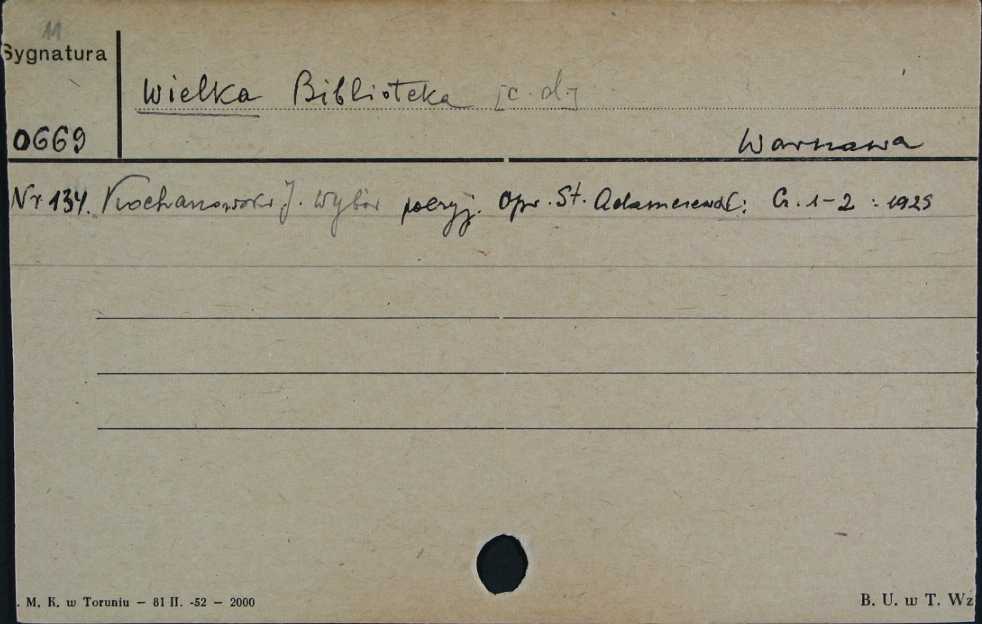 11
Sygnatura
Wielka Biblioteka [c.d.]
0669
Warszawa
Nr 134. Kochanowski J. Wybór poezyj. Opr. St. Adamczewski: Cz. 1-2 : 1925
. M. K. w Toruniu — 81 II. -52 — 2000
B. U. w T. Wz